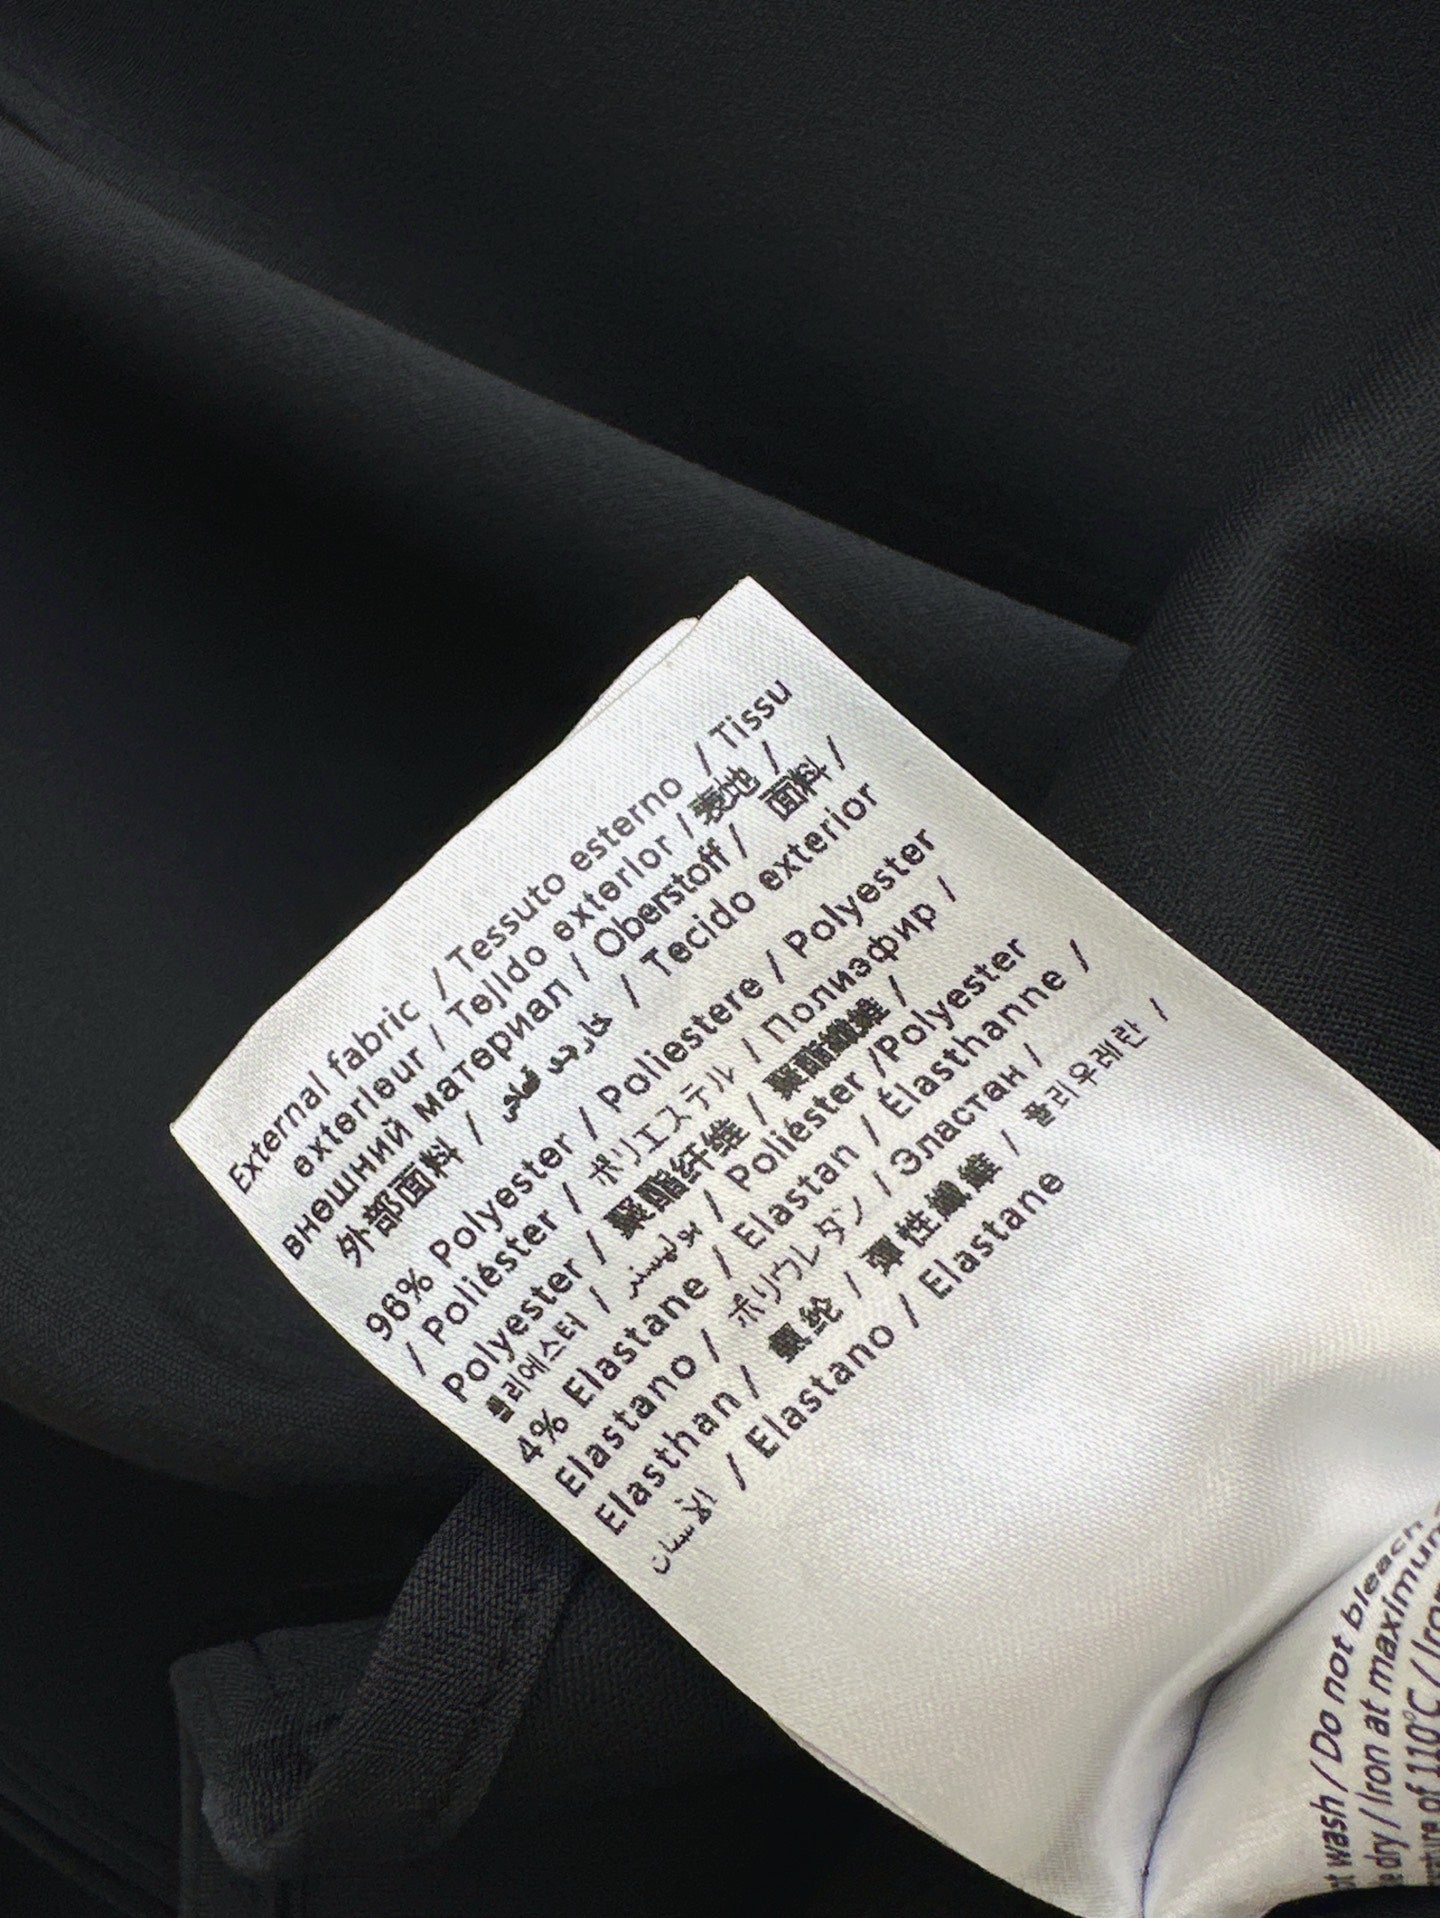 External fabric / Tessuto esterno / Tissu
exterieur / Tejido exterior / 表地 /
внешний материал / Oberstoff / 面料 /
外部面料 / خارجي قماش / Tecido exterior
96% Polyester / Poliestere / Polyester
/ Poliéster / ポリエステル / Полиэфир /
Polyester / 聚酯纤维 / 聚酯纖維 /
폴리에스터 / بوليستر / Poliéster /Polyester
4% Elastane / Elastan / Élasthanne /
Elastano / ポリウレタン / Эластан /
Elasthan / 氨纶 / 彈性纖維 / 폴리우레탄 /
الأستان / Elastano / Elastane
wash / Do not bleach
dry / Iron at maximum
of 110°C /